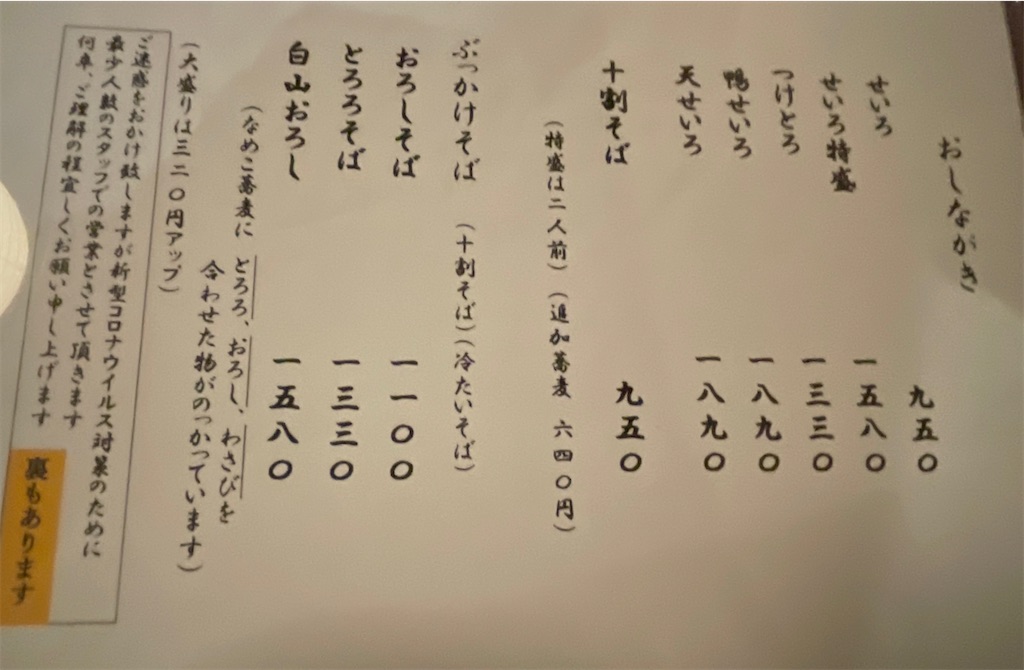 おしながき
せいろ 九五〇
せいろ特盛 一五八〇
つけとろ 一三三〇
鴨せいろ 一八九〇
天せいろ 一八九〇
十割そば 九五〇
(特盛は二人前)(追加蕎麦 六四〇円)
ぶっかけそば (十割そば)(冷たいそば)
おろしそば 一一〇〇
とろろそば 一三三〇
白山おろし 一五八〇
(なめこ蕎麦に とろろ、おろし、わさびを
合わせた物がのっかっています)
(大盛りは三二〇円アップ)
ご迷惑をおかけ致しますが新型コロナウイルス対策のために
最少人数のスタッフでの営業とさせて頂きます
何卒、ご理解の程宜しくお願い申し上げます
裏もあります